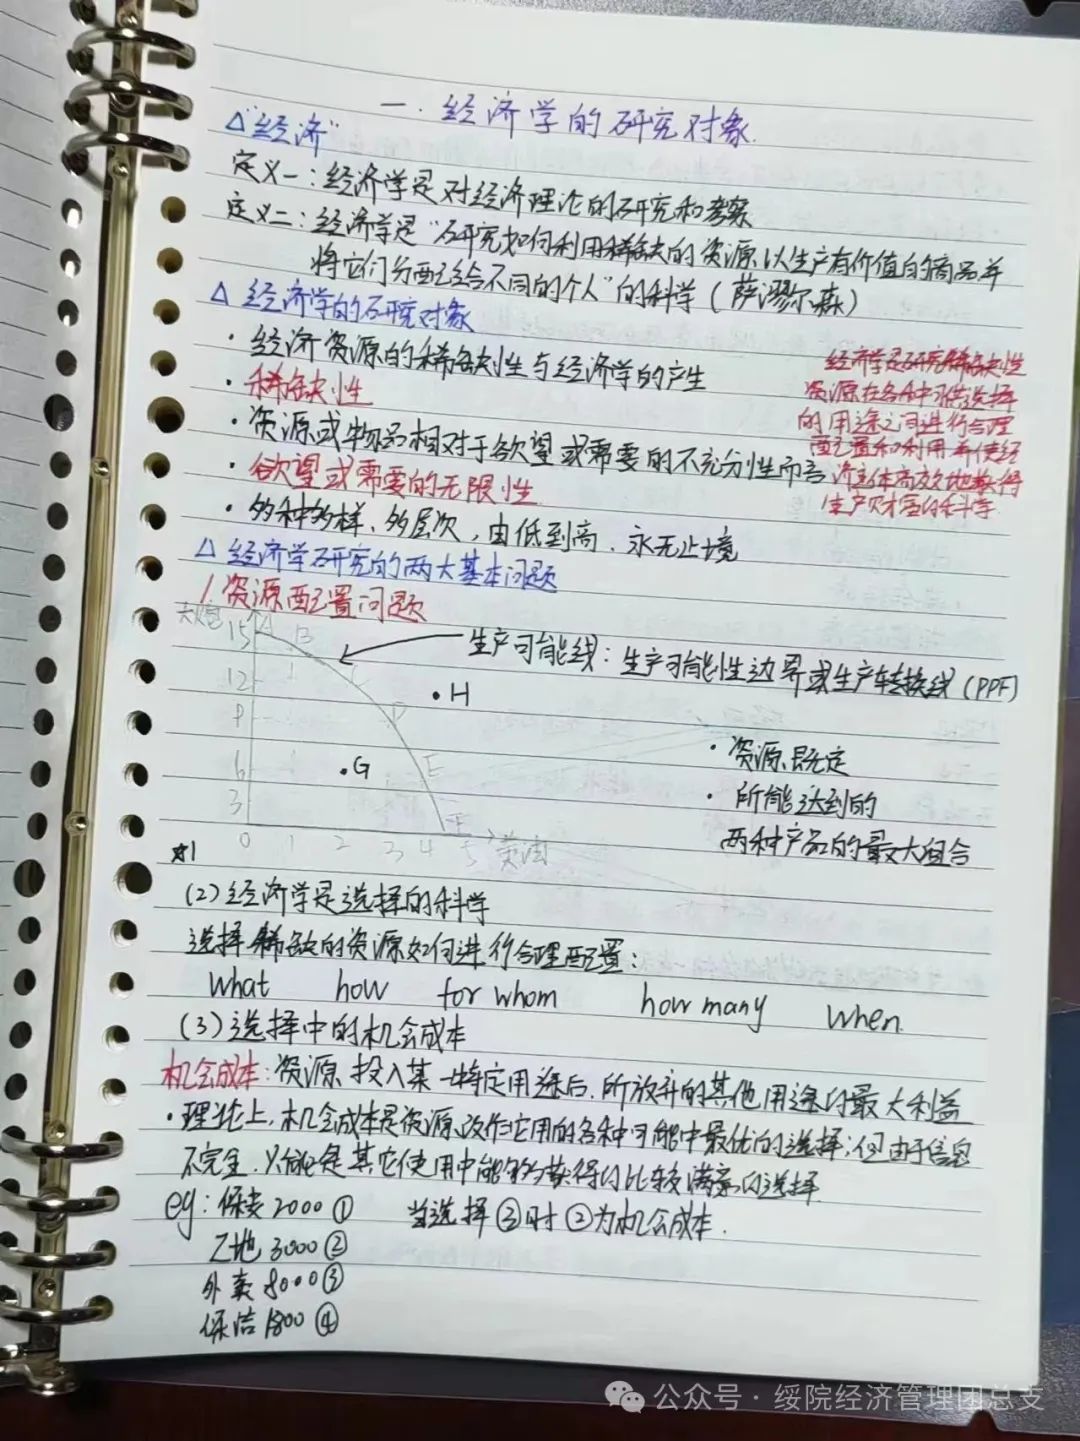 一.经济学的研究对象.
△"经济"
定义一:经济学是对经济理论的研究和考察
定义二:经济学是"研究如何利用稀缺的资源以生产有价值的商品并
将它们分配给不同的个人"的科学(萨谬尔森)
△ 经济学的研究对象
·经济资源的稀缺性与经济学的产生
·稀缺性
·资源或物品相对于欲望或需要的不充分性而言
·欲望或需要的无限性
·多种多样、多层次,由低到高、永无止境
经济学是研究稀缺性
资源在各种可供选择
的用途之间进行合理
配置和利用并使经
济主体高效地取得
生产财富的科学
△ 经济学研究的两大基本问题
1.资源配置问题
大炮
15 A B
12 C
9 D
6 E
3 F
0 1 2 3 4 5 黄油
生产可能线:生产可能性边界或生产转换线(PPF)
·H
·G
·资源既定
·所能达到的
两种产品的最大组合
*1
(2)经济学是选择的科学
选择稀缺的资源如何进行合理配置:
what how for whom how many when.
(3)选择中的机会成本
机会成本:资源投入某一特定用途后,所放弃的其他用途的最大利益
·理论上,机会成本是资源改作它用的各种可能中最优的选择;但由于信息
不完全,只能是其它使用中能够获得的比较满意的选择
eg:保安2000① 当选择③时②为机会成本.
工地3000②
外卖8000③
保洁1800④
公众号·绥院经济管理团总支